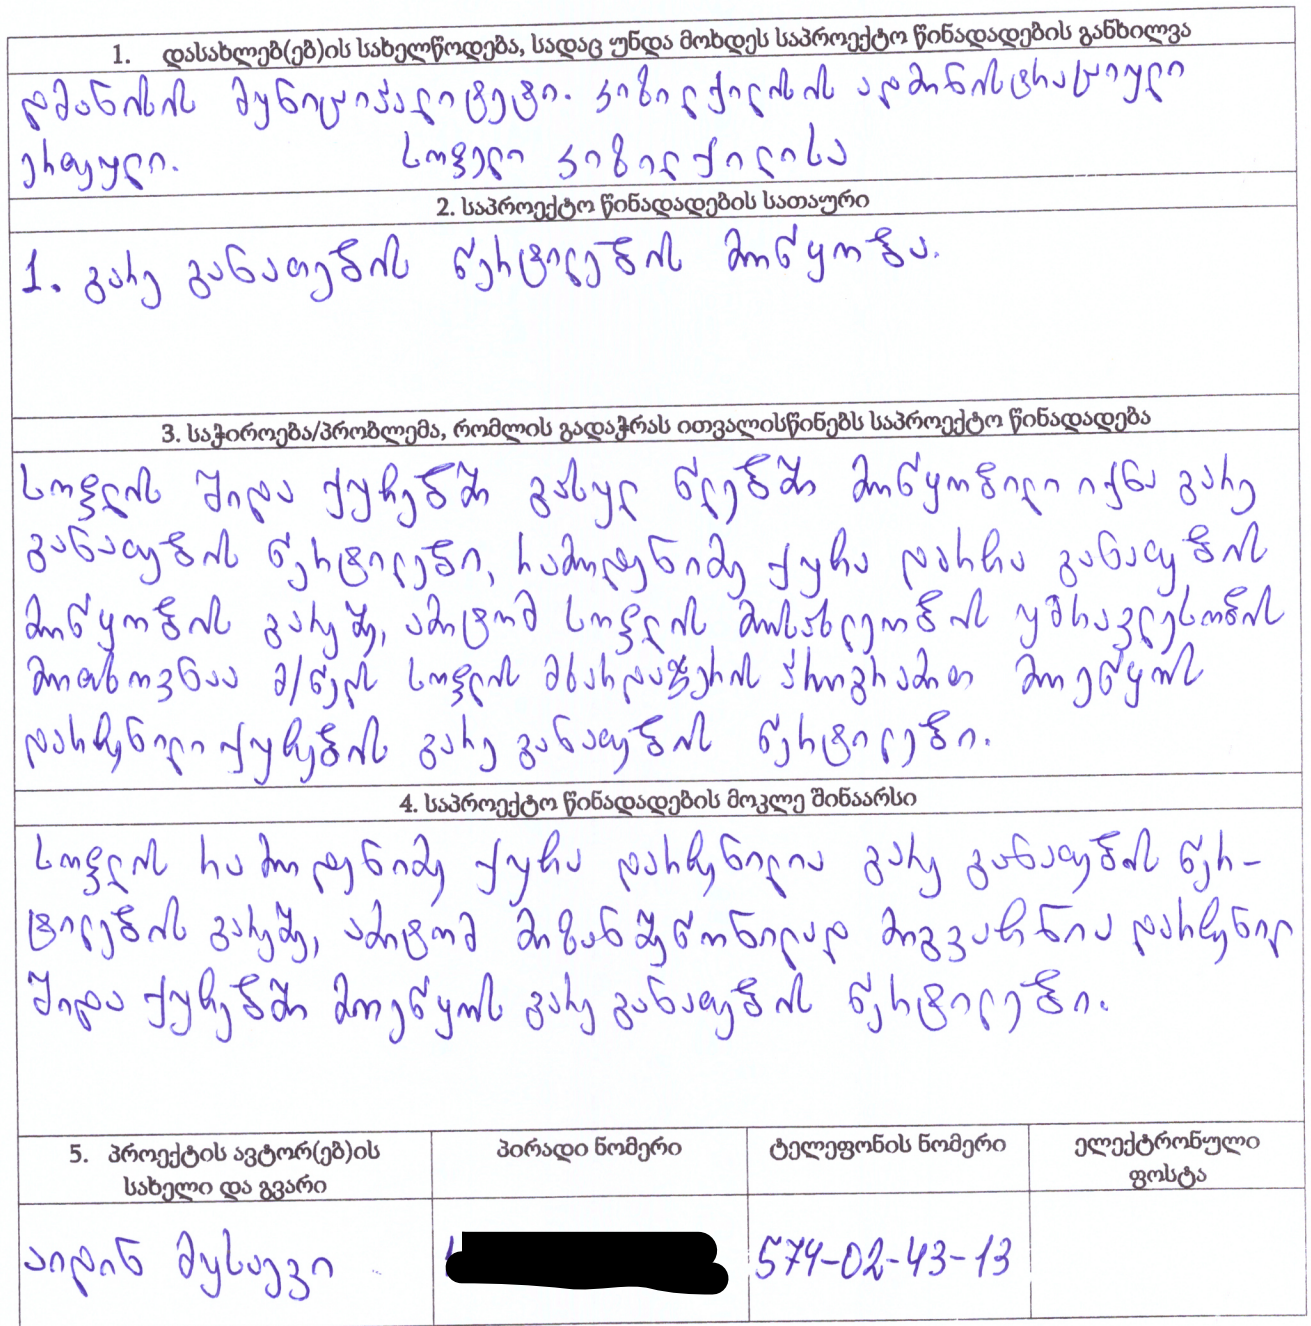 1. დასახლებ(ებ)ის სახელწოდება, სადაც უნდა მოხდეს საპროექტო წინადადების განხილვა
დმანისის მუნიციპალიტეტი. კიზილქილისის ადმინისტრაციული
ერთეული. სოფელი კიზილქილისა
2. საპროექტო წინადადების სათაური
1. გარე განათების წერტილების მოწყობა.
3. საჭიროება/პრობლემა, რომლის გადაჭრას ითვალისწინებს საპროექტო წინადადება
სოფლის შიდა ქუჩებში გასულ წლებში მოწყობილი იქნა გარე
განათების წერტილები, რამოდენიმე ქუჩა დარჩა განათების
მოწყობის გარეშე, ამიტომ სოფლის მოსახლეობის უმრავლესობის
მოთხოვნაა მ/წელს სოფლის მხარდაჭერის პროგრამით მოეწყოს
დარჩენილი ქუჩების გარე განათების წერტილები.
4. საპროექტო წინადადების მოკლე შინაარსი
სოფლის რამოდენიმე ქუჩა დარჩენილია გარე განათების წერ-
ტილების გარეშე, ამიტომ მიზანშეწონილად მიგვაჩნია დარჩენილ
შიდა ქუჩებში მოეწყოს გარე განათების წერტილები.
5. პროექტის ავტორ(ებ)ის პირადი ნომერი ტელეფონის ნომერი ელექტრონული
სახელი და გვარი ფოსტა
აიდინ მუსაევი 574-02-43-13